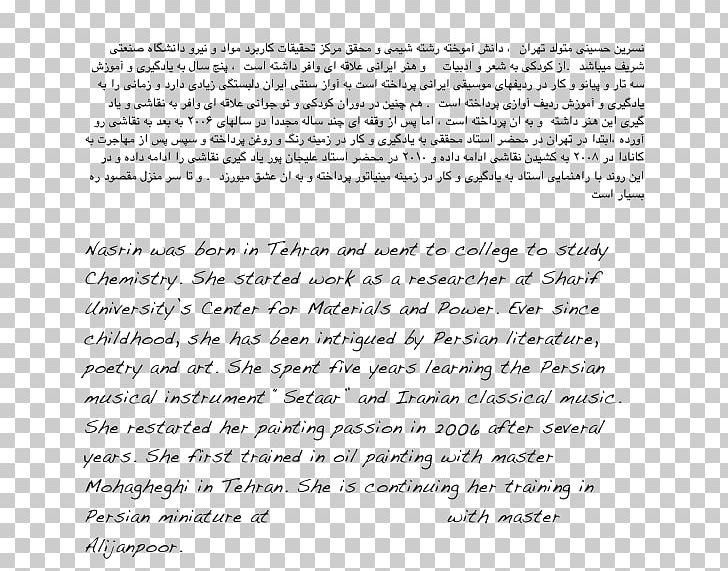 نسرین حسینی متولد تهران ، دانش آموخته رشته شیمی و محقق مرکز تحقیقات کاربرد مواد و نیرو دانشگاه صنعتی
شریف میباشد .از کودکی به شعر و ادبیات و هنر ایرانی علاقه ای وافر داشته است ، پنج سال به یادگیری و آموزش
سه تار و پیانو و کار در ردیفهای موسیقی ایرانی پرداخته است به آواز سنتی ایران دلبستگی زیادی دارد و زمانی را به
یادگیری و آموزش ردیف آوازی پرداخته است . هم چنین در دوران کودکی و نو جوانی علاقه ای وافر به نقاشی و یاد
گیری این هنر داشته و به ان پرداخته است ، اما پس از وقفه ای چند ساله مجددا در سالهای ۲۰۰۶ به بعد به نقاشی رو
آورده .ابتدا در تهران در محضر استاد محققی به یادگیری و کار در زمینه رنگ و روغن پرداخته و سپس پس از مهاجرت به
کانادا در ۲۰۰۸ به کشیدن نقاشی ادامه داده و ۲۰۱۰ در محضر استاد علیجان پور یاد گیری نقاشی را ادامه داده و در
این روند با راهنمایی استاد به یادگیری و کار در زمینه مینیاتور پرداخته و به ان عشق میورزد . و تا سر منزل مقصود ره
بسیار است
Nasrin was born in Tehran and went to college to study
Chemistry. She started work as a researcher at Sharif
University's Center for Materials and Power. Ever since
childhood, she has been intrigued by Persian literature,
poetry and art. She spent five years learning the Persian
musical instrument " Setaar" and Iranian classical music.
She restarted her painting passion in 2006 after several
years. She first trained in oil painting with master
Mohagheghi in Tehran. She is continuing her training in
Persian miniature at with master
Alijanpoor.